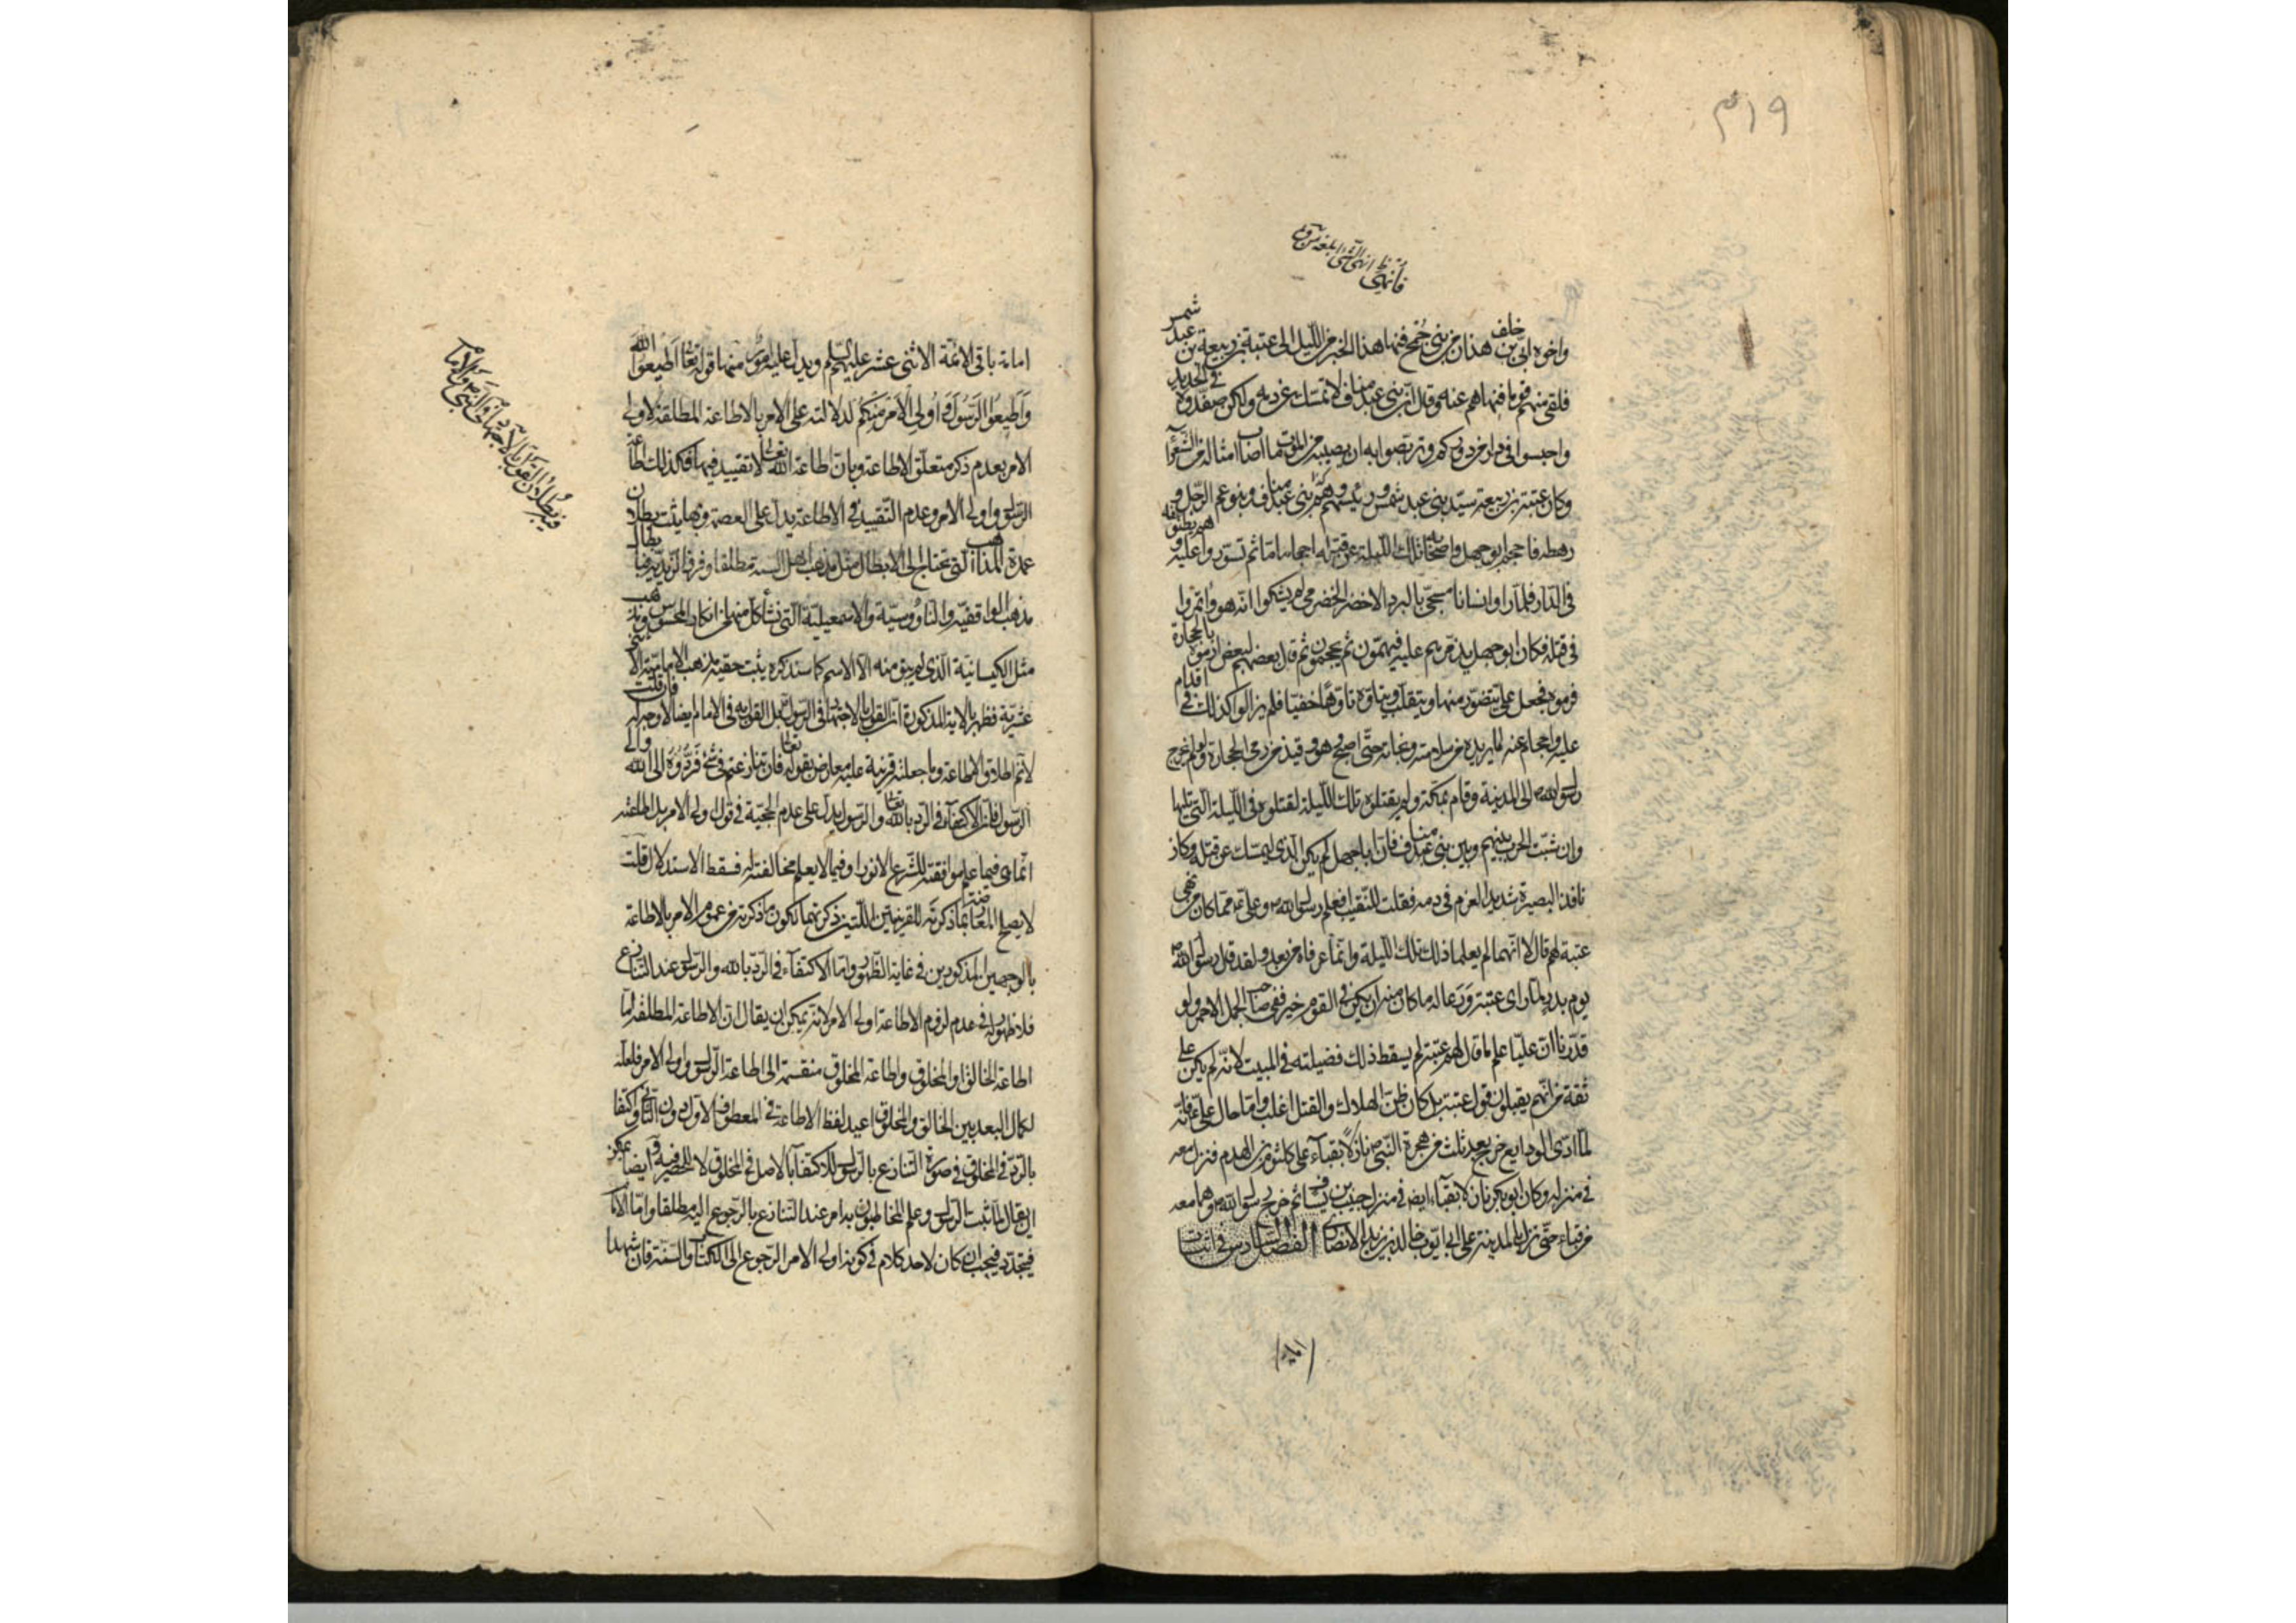 ٣١٩
فأنهى
واخوه ابی بن خلف هذان من بنی جمح فنها هذا الخبر من اللیل الی عتبة بن ربیعة بن عبد شمس
فلقی منهم قوما فنهاهم عنه وقال ان بنی عبد مناف لا تمسك عن دمه ولکن صفّدوه فی الحدید
واحبسوا فی دار من دورکم وتربصوا به ان یصیبه من الموت ما اصاب امثاله من الشعرآ
وکان عتبة بن ربیعة سید بنی عبد شمس ورئیسهم وهم بنی عبد مناف وبنو عم الرجل و
رهطه فاحجم ابوجهل واصحابه تلك اللیلة عن قتله احجاما ثم تسوّروا علیه وهم یظنونه
فی الدّار فلمّا راوا انسانا مسجّی بالبرد الاخضر الحضرمی لم یشکوا انّه هو وائتمروا
فی قتله فکان ابوجهل یذمرهم علیه فیهمّون ثم یحجمون ثم قال بعضهم لبعض ارموه بالحجارة
فرموه فجعل علی یتضوّر منها ویتقلب ویتاوّه تاوّها خفیّا فلم یزالوا کذلك فی اقدام
علیه واحجام عنه لما یریده من سلامته ونجاته حتّی اصبح وهو وقیذ من رمی الحجارة ولو لم یخرج
رسول الله الی المدینة واقام بمکة ولم یقتلوه تلك اللیلة لقتلوه فی اللیلة التی تلیها
وان شبّت الحرب بینهم وبین بنی عبد مناف فانّ اباجهل لم یکن الّذی لیمسك عن قتله وکان
ناقد البصیرة شدید العزم فی دمه فقلت للنّقیب افعلم رسول الله وعلی بما کان من نهی
عتبة لهم قال لا انّهما لم یعلما ذلك تلك اللیلة وانّما عرفاه من بعد ولقد قال رسول الله
یوم بدر لمّا رای عتبة وما کان منه ان یکن فی القوم خیر ففی صاحب الجمل الاحمر ولو
قدّرنا انّ علیّا علم ما قال لهم عتبة لم یسقط ذلك فضیلته فی المبیت لانّه لم یکن علی
ثقة من انّهم یقبلون قول عتبة بل کان ظنّ الهلاك والقتل اغلب وامّا حال علی فانّه
لمّا ادّی الودایع خرج بعد ثلث من هجرة النّبی نازلا بقباء علی کلثوم بن الهدم فنزل معه
فی منزله وکان ابوبکر نازلا بقباء ایضا فی منزل حبیب بن یساف ثم خرج رسول الله وهما معه
من قباء حتّی نزل بالمدینة علی ابی ایوب خالد بن زید الانصاری الفصل السادس فی اثبات
امامة
امامة باقی الائمّة الاثنی عشر علیهم السلم ویدل علیه امور منها قوله تعا اَطیعُوا الله
وَاَطیعُوا الرَّسُولَ وَاُولِی الاَمرِ مِنکُم لدلالته علی الامر بالاطاعة المطلقة لاولی
الامر بعدم ذکر متعلّق الاطاعة وبانّ اطاعة الله تعا لا تقیید فیها فکذلك اطاعة
الرّسول واولی الامر وعدم التّقیید فی الاطاعة یدلّ علی العصمة وبها یثبت بطلان
عمدة المذاهب الّتی تحتاج الی الابطال مثل مذهب اهل السنة مطلقا وفرق الزیدیة وبطلان
مذهب الواقفیّة والناووسیّة والاسمعیلیّة الّتی نشأ کلّ منها من انکار المحسوس ومذهب
مثل الکیسانیّة الّذی لم یبق منه الّا الاسم کما سنذکره یثبت حقیّة مذهب الامامیّة الاثنی
عشریّة فظهر بالایة المذکورة انّ القول بالاجتهاد فی الرّسول بل القول به فی الامام ایضا لا وجه له فان قلت
لا نم اطلاق الاطاعة وما جعلته قرینة علیه معارض بقوله تعا فان تنازعتم فی شئ فَرُدُّوه الی الله والی
الرّسول فانّ الاکتفاء فی الرّد بالله تعا والرّسول یدل علی عدم الحجّیة فی قول اولی الامر بل اطاعته
انّما هی فیما علم موافقته للشّرع الانور او فیما لا یعلم مخالفته له فسقط الاستدلال قلت
لا یصلح المعارضة بما ذکرته للقرینتین اللّتین ذکرتهما لکون ما ذکرته من عموم الامر بالاطاعة
بالوجهین المذکورین فی غایة الظّهور وامّا الاکتفاء فی الرّدّ بالله والرّسول عند التّنازع
فلا ظهور له فی عدم لزوم الاطاعة اولی الامر لانّه یمکن ان یقال انّ الاطاعة المطلقة امّا
اطاعة الخالق او المخلوق واطاعة المخلوق منقسمة الی اطاعة الرّسول واولی الامر فلعلّه
لکمال البعد بین الخالق والمخلوق اعید لفظ الاطاعة فی المعطوف الاوّل دون الثّانی واکتفا
بالرّدّ فی المخلوق فی صورة التّنازع بالرّسول للاکتفاء بالاصل فی المخلوق لا للحصر فیه وایضا یمکن
ان یقال لمّا ثبت الرّسول وعلم المخاطبون به امر عند التّنازع بالرّجوع الیه مطلقا وامّا الامام
فیتجدّد فیجب ان کان لاحد کلام فی کونه اولی الامر الرّجوع الی الکتاب والسّنّة فان شهدا